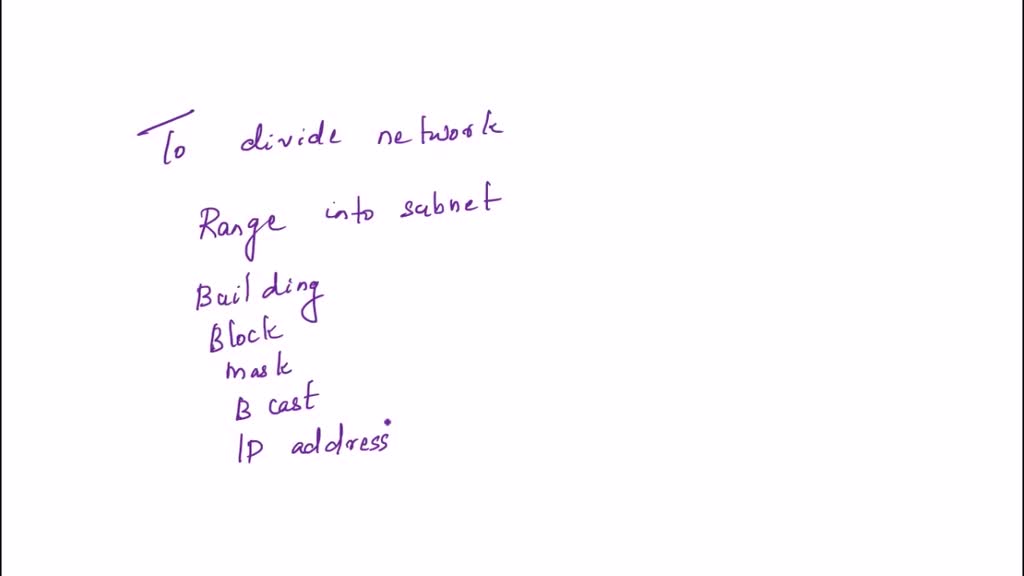 To divide network
Range into subnet
Building
Block
mask
B cast
IP address